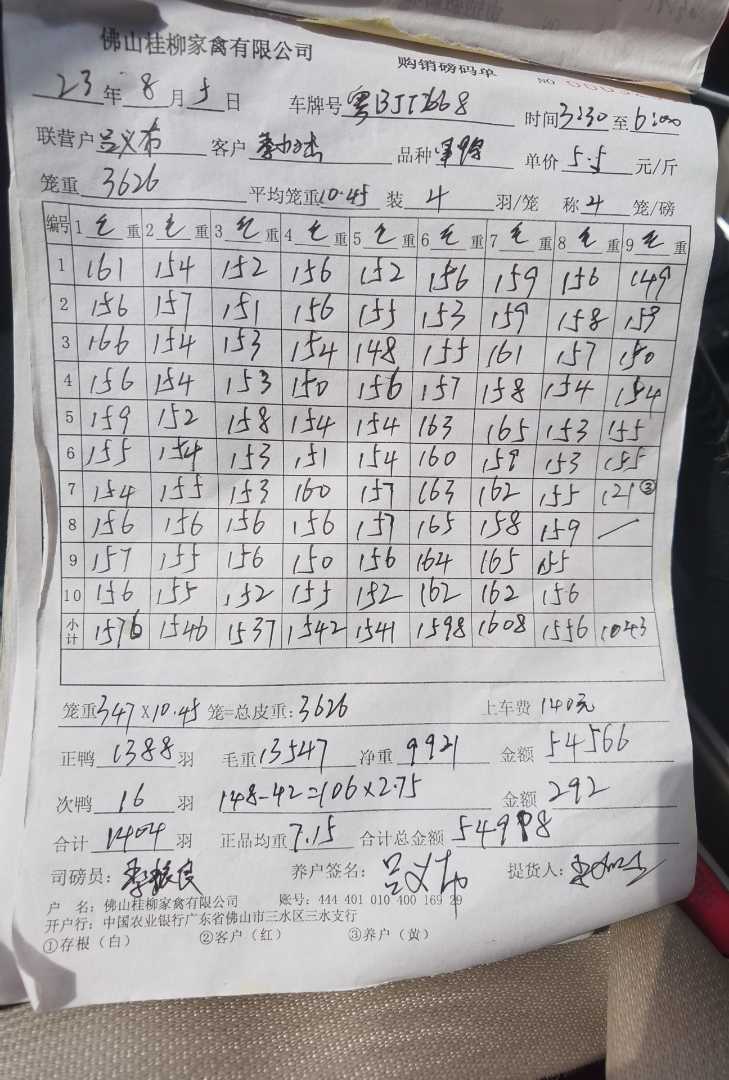 佛山桂柳家禽有限公司 购销磅码单
NO
23年8月5日 车牌号 时间3:30至6:00
联营户吕义布 客户 品种 单价5.5元/斤
笼重3626 平均笼重10.45 装4羽/笼 称4笼/磅
编号 1毛重 2毛重 3毛重 4毛重 5毛重 6毛重 7毛重 8毛重 9毛重
1 161 154 152 156 152 156 159 156 149
2 156 157 151 156 155 153 159 158 159
3 166 154 153 154 148 155 161 157 150
4 156 154 153 150 156 157 158 154 154
5 159 152 158 154 154 163 165 153 155
6 155 154 153 151 154 160 159 153 155
7 154 155 153 160 157 163 162 155 121③
8 156 156 156 156 157 165 158 159 /
9 157 155 156 150 156 164 165 155
10 156 155 152 155 152 162 162 156
小计 1576 1546 1537 1542 1541 1598 1608 1556 1043
笼重347×10.45笼=总皮重:3626 上车费140元
正鸭1388羽 毛重13547 净重9921 金额54566
次鸭16羽 148-42=106×2.75 金额292
合计1404羽 正品均重7.15 合计总金额
司磅员: 养户签名:吕义布 提货人:
户 名:佛山桂柳家禽有限公司 账号:444 401 010 400 169 29
开户行:中国农业银行广东省佛山市三水区三水支行
①存根(白) ②客户(红) ③养户(黄)